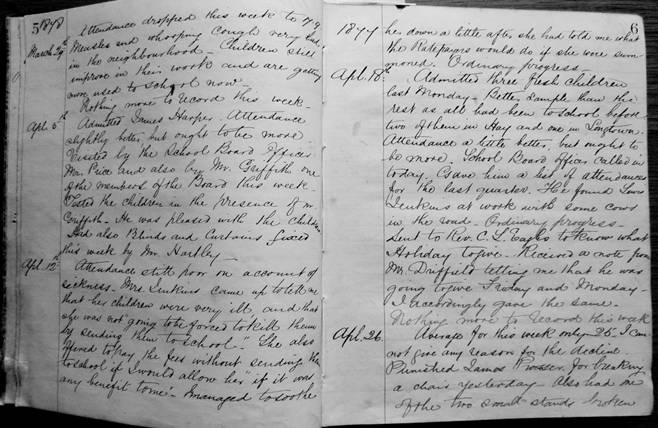 5
1878
Attendance dropped this week to 49.
March 29th
Measles and whooping cough very bad
in the neighbourhood - Children still
improve in their work and are getting
more used to school now.
Nothing more to record this week -
Apl. 5th
Admitted James Harper. Attendance
slightly better, but ought to be more
Visited by the School Board Officer
Mr Price and also by Mr. Griffith one
of the members of the Board this week -
Tested the children in the presence of Mr
Griffith - He was pleased with the children
Had also Blinds and Curtains fixed
this week by Mr Hartley -
Apl. 12th
Attendance still poor on account of
sickness. Mrs Jenkins came up to tell me
that her children were very ill, and that
she was not going to be forced to kill them
by sending them to school." She also
offered to pay the fees without sending them
to school if I would allow her "if it was
any benefit to me" - Managed to soothe
6
1877
her down a little after she had told me what
the Ratepayers would do if she were sum
moned. Ordinary progress -
Apl. 18th
Admitted three fresh children
last Monday - Better sample than the
rest as all had been to school before
two of them in Hay and one in Longtown.
Attendance a little better, but ought to
be more. School Board officer called in
today. Gave him a list of attendances
for the last quarter. He found
Jenkins at work with some cows
in the road. Ordinary progress -
Sent to Rev. C. L. Eagles to know what
Holiday to give. Received a note from
Mr. Driffield telling me that he was
going to give Friday and Monday -
I accordingly gave the same.
Nothing more to record this week
Apl. 26.
Average for this week only 25. I can
not give any reason for the decline.
Punished James Prosser for breaking
a chair yesterday. Also had one
of the two small stands broken